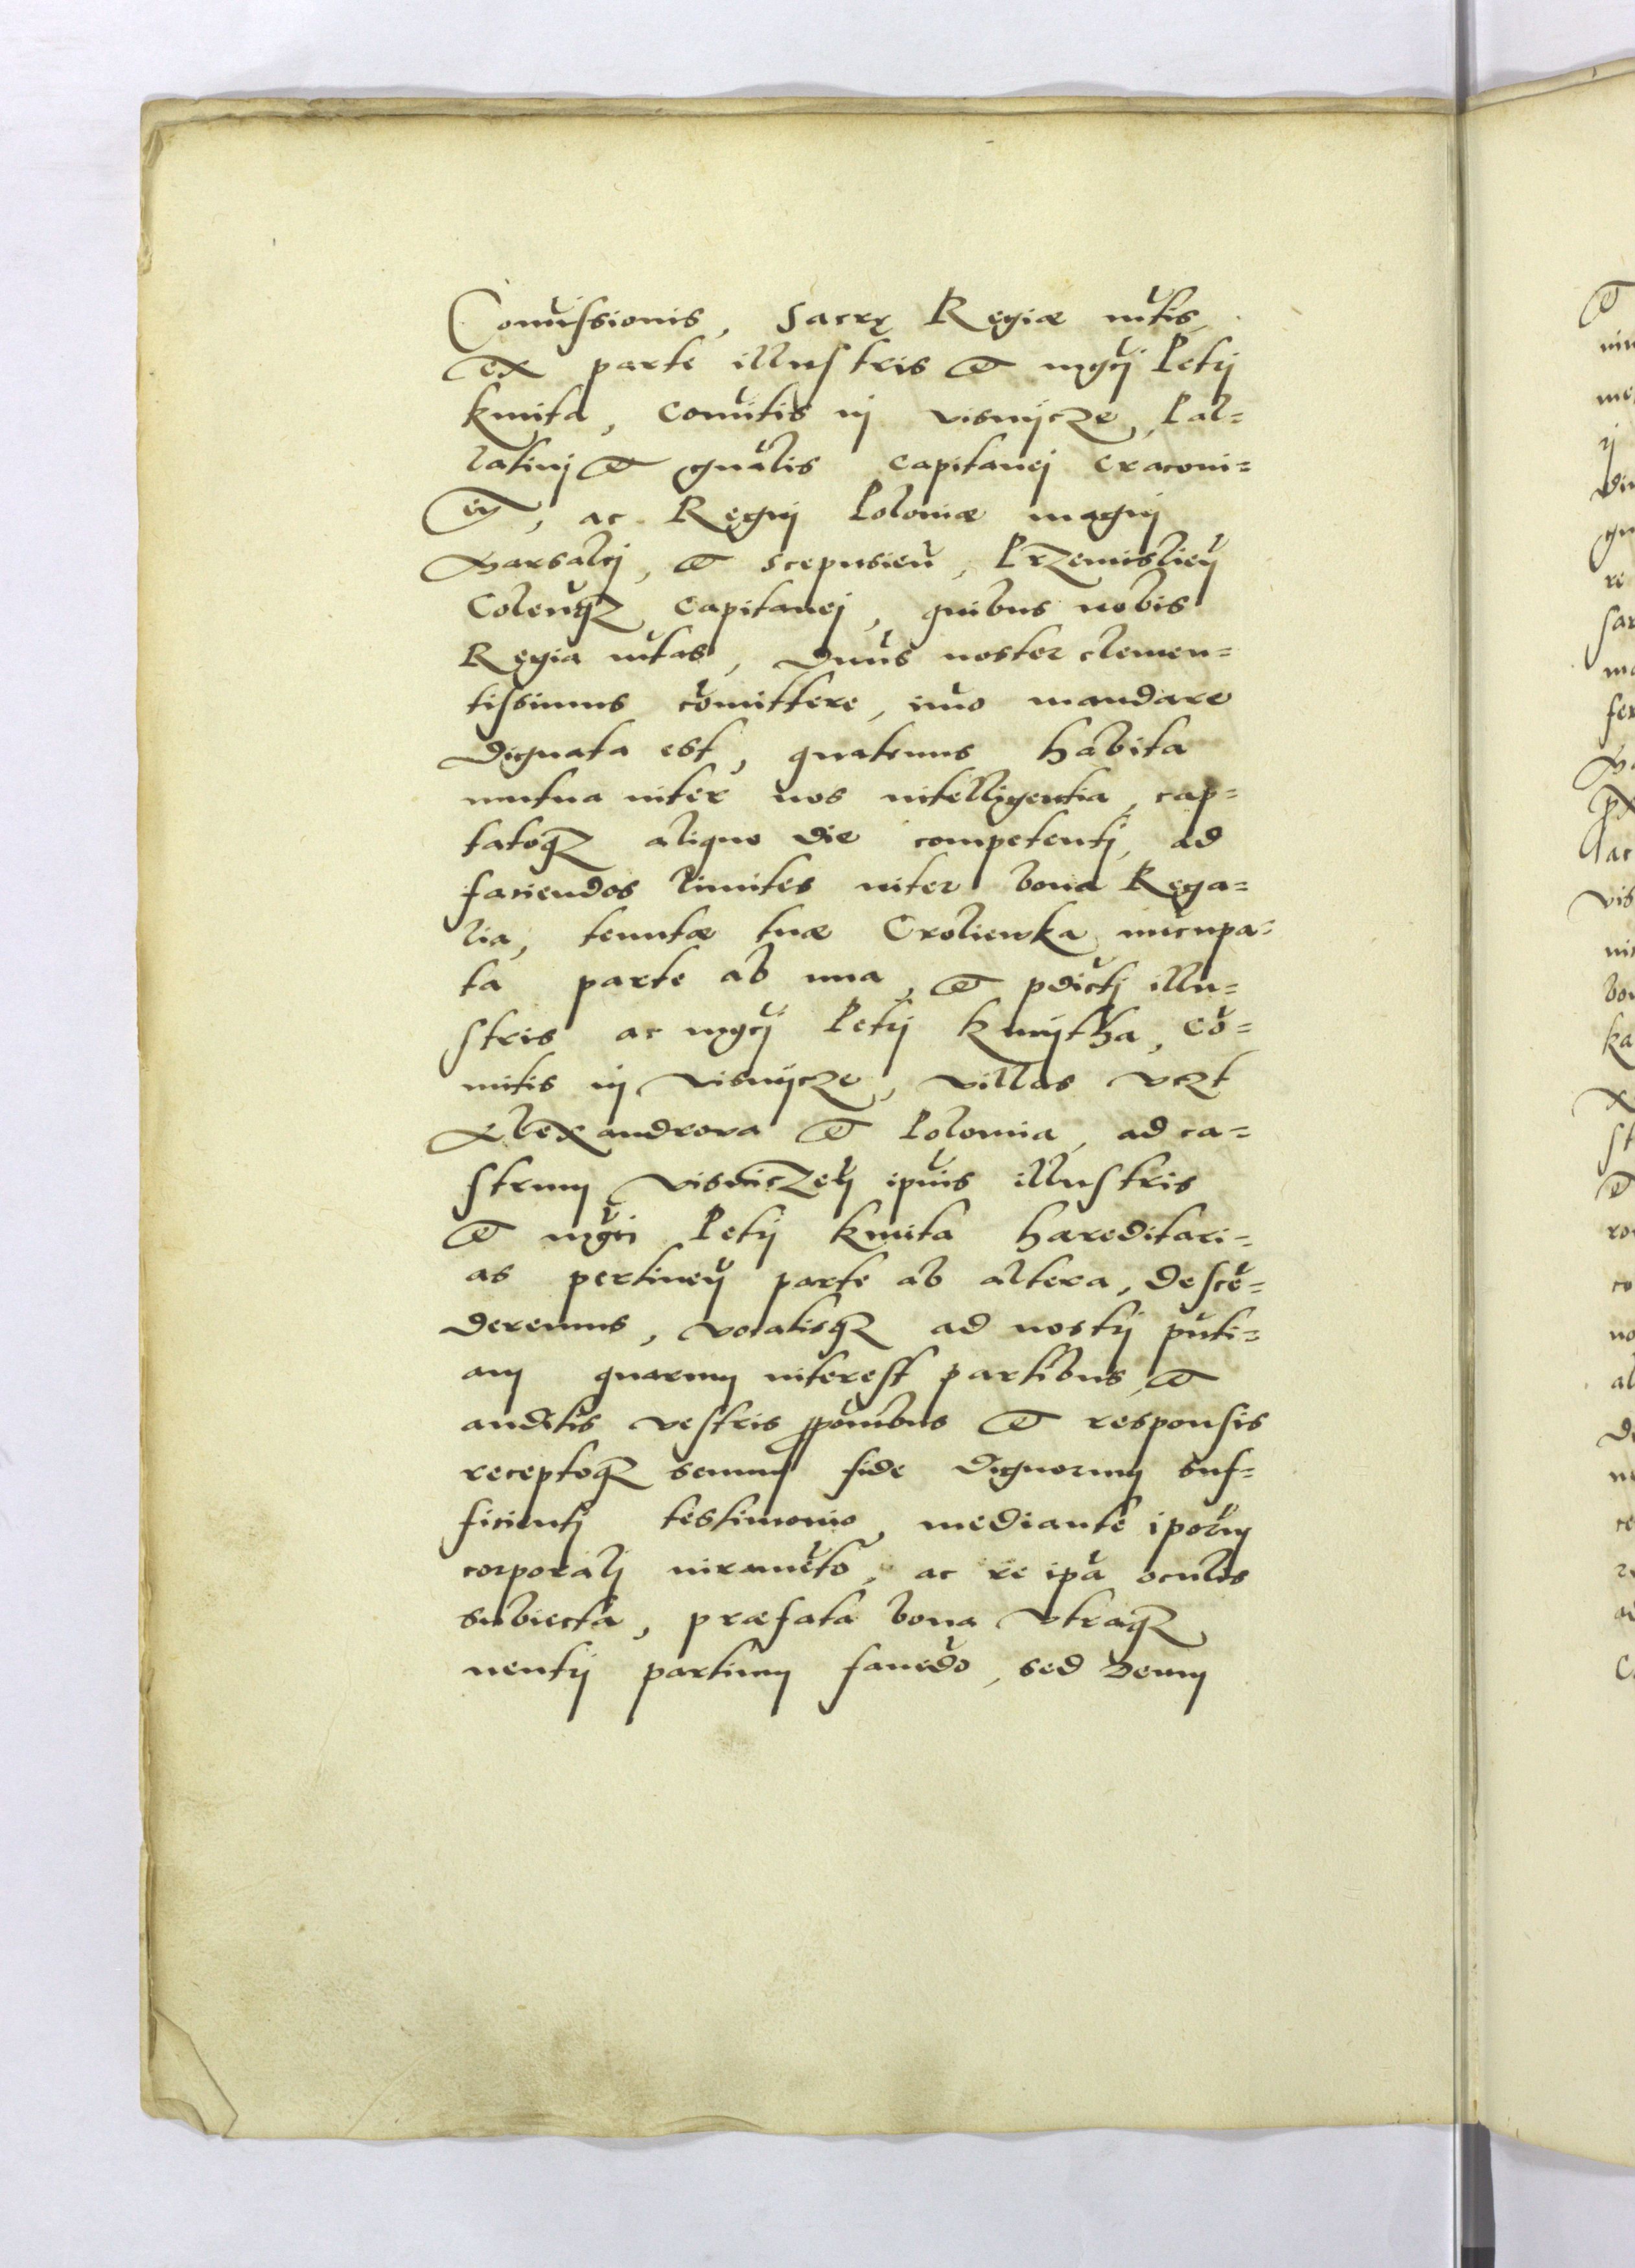 Com̃issionis, Sacrę Regiæ mtis
Ex parte illustris Et mgcj Petrj
kmita, Comitis in visnijcze, Pal=
latinj Et gnãlis capitanej cracoui=
eñ, ac Regnj Poloniæ magnj
Marsalcj, Et scepusieñ, Przemislieñ
Coleñqz capitanej, quibus nobis
Regia mtas, Dnũs noster clemen=
tissimus cõmittere, imo mandare
dignata est, quatenus habita
mutua inter nos intelligentia, cap=
tatoqz aliquo die competentj, ad
faciendos limites inter bona Rega=
lia, tenutæ tuæ Croliewka nucupa=
ta parte ab una, Et pdictj illu=
stris ac mgcj Petrj kmijtha, Cõ=
mitis in visnijcze, villas vczt
Alexandrova Et Polomia, ad ca=
strum visniczeñ ipũis illustris
Et mgci Petrj kmita hareditari=
as pertineñ parte ab altera, desce͂=
deremus, vocatisqz ad nostrj pñti=
am quarum interest partibus, Et
auditis vestris pponibus Et responsis
receptoqz senum fide dignorum suf=
ficientj testimonio, mediante iporum
corporalj iurameto, ac re ipa oculis
subiecta, præfata bona vtraqz
neutrj partium fauẽdo, sed Deum